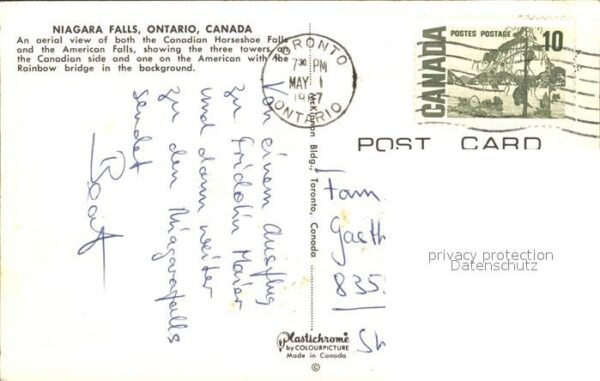 NIAGARA FALLS, ONTARIO, CANADA
An aerial view of both the Canadian Horseshoe Falls
and the American Falls, showing the three towers on
the Canadian side and one on the American with the
Rainbow bridge in the background.
TORONTO
7 30 PM
MAY 1
ONTARIO
POSTES POSTAGE
10
CANADA
POST CARD
Von einem Ausflug
zu Fridolin Maier
und dann weiter
zu den Niagarafalls
sendet
Beat
Bldg., Toronto, Canada
Fam.
Gasth
835
St
privacy protection
Datenschutz
Plastichrome
by COLOURPICTURE
Made in Canada
©